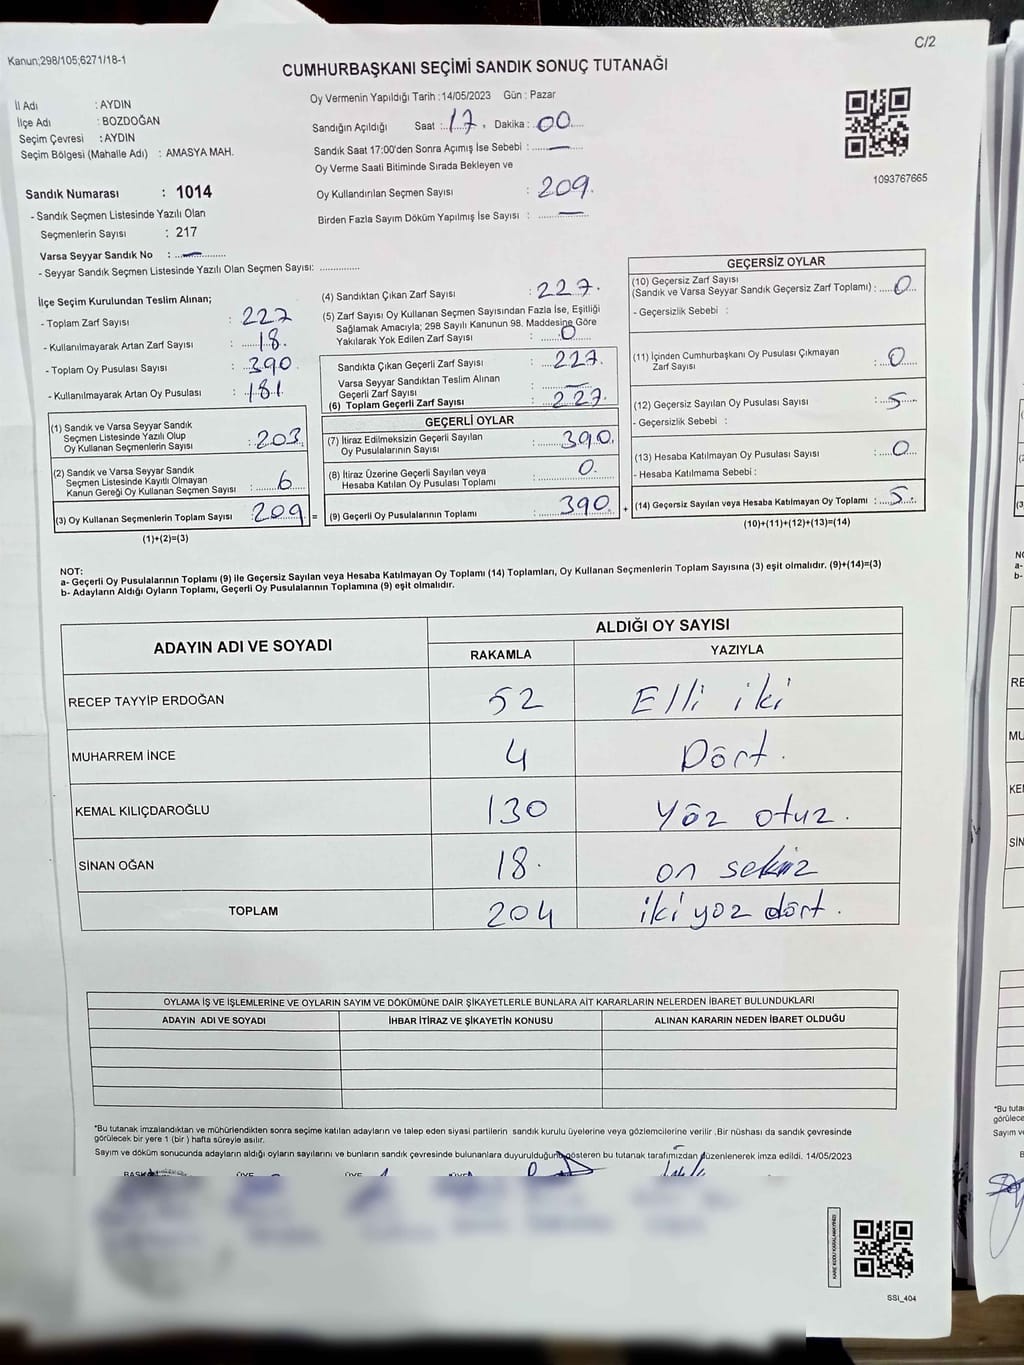 C/2
Kanun;298/105;6271/18-1
CUMHURBAŞKANI SEÇİMİ SANDIK SONUÇ TUTANAĞI
İl Adı : AYDIN
İlçe Adı : BOZDOĞAN
Seçim Çevresi : AYDIN
Seçim Bölgesi (Mahalle Adı) : AMASYA MAH.
Sandık Numarası : 1014
- Sandık Seçmen Listesinde Yazılı Olan
Seçmenlerin Sayısı : 217
Varsa Seyyar Sandık No : —
- Seyyar Sandık Seçmen Listesinde Yazılı Olan Seçmen Sayısı: ..............
Oy Vermenin Yapıldığı Tarih :14/05/2023 Gün : Pazar
Sandığın Açıldığı Saat : 17, Dakika : 00
Sandık Saat 17:00'den Sonra Açımış İse Sebebi : —
Oy Verme Saati Bitiminde Sırada Bekleyen ve
Oy Kullandırılan Seçmen Sayısı : 209.
Birden Fazla Sayım Döküm Yapılmış İse Sayısı : —
1093767665
İlçe Seçim Kurulundan Teslim Alınan;
- Toplam Zarf Sayısı : 227
- Kullanılmayarak Artan Zarf Sayısı : 18.
- Toplam Oy Pusulası Sayısı : 390.
- Kullanılmayarak Artan Oy Pusulası : 181
(1) Sandık ve Varsa Seyyar Sandık
Seçmen Listesinde Yazılı Olup
Oy Kullanan Seçmenlerin Sayısı : 203
(2) Sandık ve Varsa Seyyar Sandık
Seçmen Listesinde Kayıtlı Olmayan
Kanun Gereği Oy Kullanan Seçmen Sayısı : 6
(3) Oy Kullanan Seçmenlerin Toplam Sayısı 209 =
(1)+(2)=(3)
(4) Sandıktan Çıkan Zarf Sayısı : 227.
(5) Zarf Sayısı Oy Kullanan Seçmen Sayısından Fazla İse, Eşitliği
Sağlamak Amacıyla; 298 Sayılı Kanunun 98. Maddesine Göre
Yakılarak Yok Edilen Zarf Sayısı : 0
Sandıkta Çıkan Geçerli Zarf Sayısı : 227.
Varsa Seyyar Sandıktan Teslim Alınan
Geçerli Zarf Sayısı : —
(6) Toplam Geçerli Zarf Sayısı : 227.
GEÇERLİ OYLAR
(7) İtiraz Edilmeksizin Geçerli Sayılan
Oy Pusulalarının Sayısı : 390.
(8) İtiraz Üzerine Geçerli Sayılan veya
Hesaba Katılan Oy Pusulası Toplamı : 0.
(9) Geçerli Oy Pusulalarının Toplamı : 390. +
GEÇERSİZ OYLAR
(10) Geçersiz Zarf Sayısı
(Sandık ve Varsa Seyyar Sandık Geçersiz Zarf Toplamı) : 0
- Geçersizlik Sebebi :
(11) İçinden Cumhurbaşkanı Oy Pusulası Çıkmayan
Zarf Sayısı : 0
(12) Geçersiz Sayılan Oy Pusulası Sayısı : 5
- Geçersizlik Sebebi :
(13) Hesaba Katılmayan Oy Pusulası Sayısı : 0
- Hesaba Katılmama Sebebi :
(14) Geçersiz Sayılan veya Hesaba Katılmayan Oy Toplamı : 5.
(10)+(11)+(12)+(13)=(14)
NOT:
a- Geçerli Oy Pusulalarının Toplamı (9) ile Geçersiz Sayılan veya Hesaba Katılmayan Oy Toplamı (14) Toplamları, Oy Kullanan Seçmenlerin Toplam Sayısına (3) eşit olmalıdır. (9)+(14)=(3)
b- Adayların Aldığı Oyların Toplamı, Geçerli Oy Pusulalarının Toplamına (9) eşit olmalıdır.
ADAYIN ADI VE SOYADI ALDIĞI OY SAYISI
RAKAMLA YAZIYLA
RECEP TAYYİP ERDOĞAN 52 Elli iki
MUHARREM İNCE 4 Dört.
KEMAL KILIÇDAROĞLU 130 Yöz otuz.
SİNAN OĞAN 18. on sekiz
TOPLAM 204 iki yöz dört.
OYLAMA İŞ VE İŞLEMLERİNE VE OYLARIN SAYIM VE DÖKÜMÜNE DAİR ŞİKAYETLERLE BUNLARA AİT KARARLARIN NELERDEN İBARET BULUNDUKLARI
ADAYIN ADI VE SOYADI İHBAR İTİRAZ VE ŞİKAYETİN KONUSU ALINAN KARARIN NEDEN İBARET OLDUĞU
*Bu tutanak imzalandıktan ve mühürlendikten sonra seçime katılan adayların ve talep eden siyasi partilerin sandık kurulu üyelerine veya gözlemcilerine verilir .Bir nüshası da sandık çevresinde
görülecek bir yere 1 (bir ) hafta süreyle asılır.
Sayım ve döküm sonucunda adayların aldığı oyların sayılarını ve bunların sandık çevresinde bulunanlara duyurulduğunu gösteren bu tutanak tarafımızdan düzenlenerek imza edildi. 14/05/2023
SSI_404